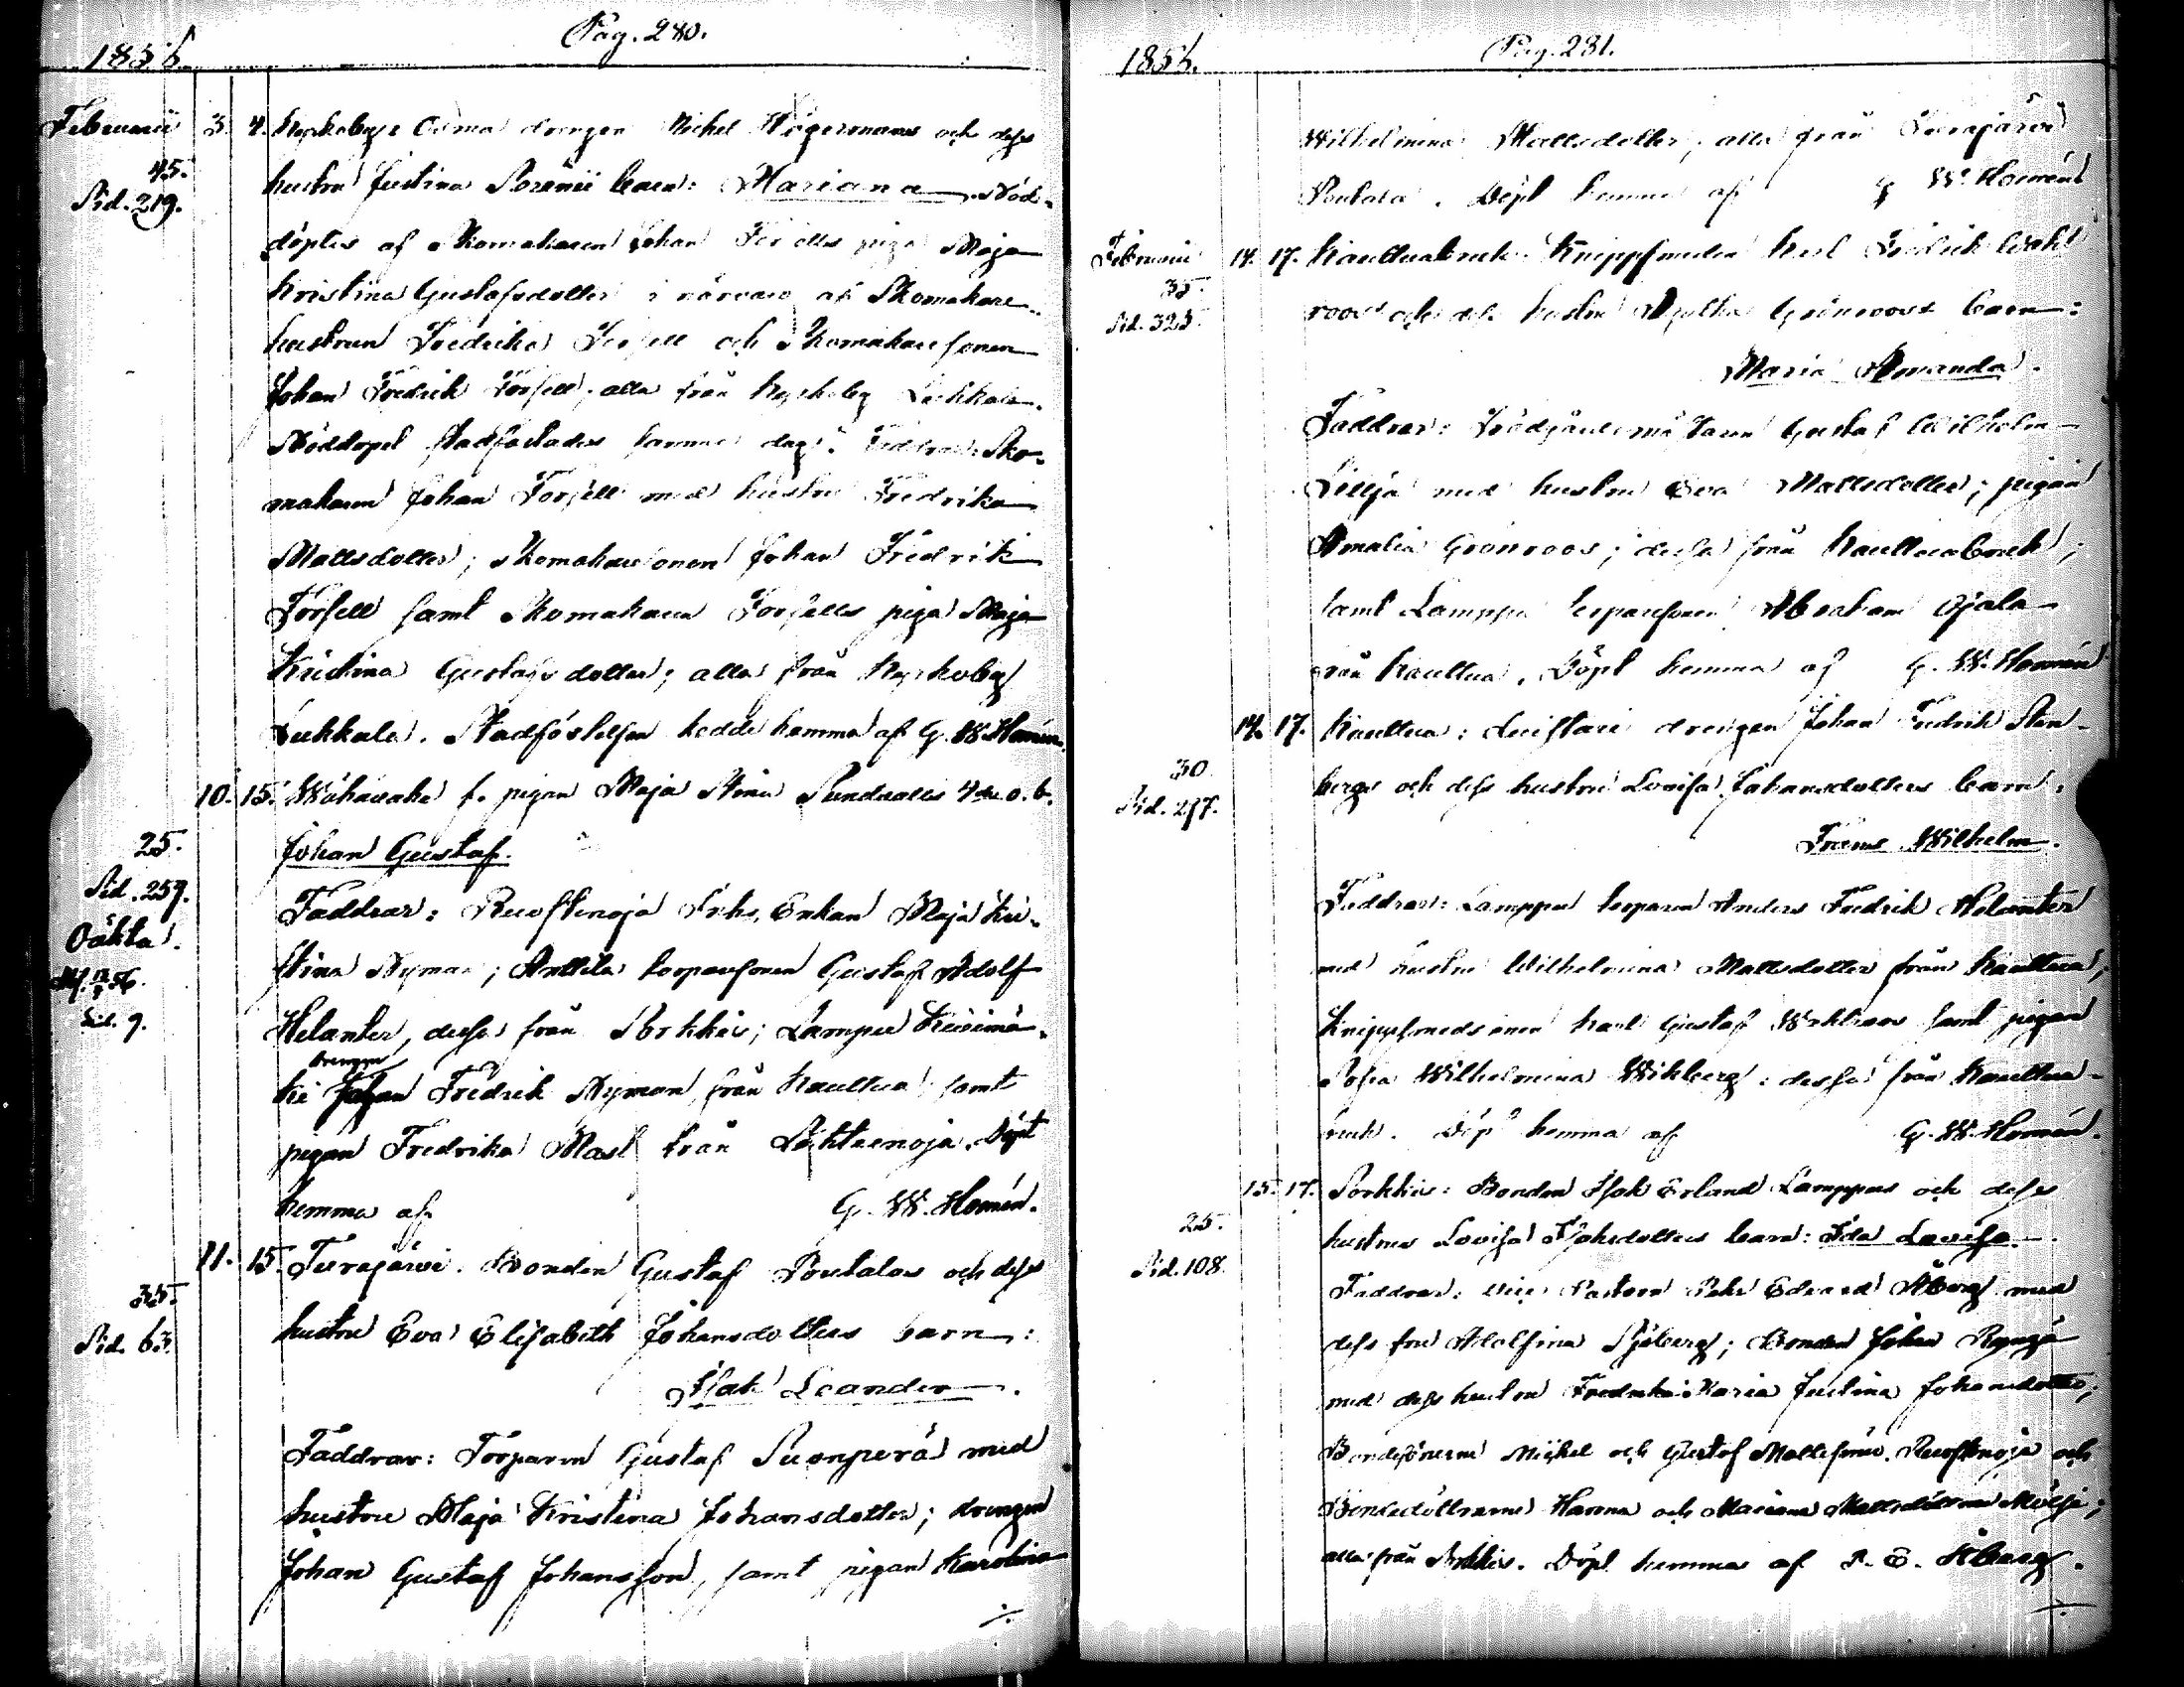 Pag. 280.
1856.
Februarii 3. 4. Kyrkoby: Osma drengen Michel Högermans och dess
45.
Sid. 219.
hustru Justina Sorenii barn: Mariana. Nöd-
döptes af Skomakaren Johan Forsells piga Maja
Kristina Gustafsdotter i närvaro af Skomakare-
hustrun Fredrika Forsell och Skomakaresonen
Johan Fredrik Forsell; alla från Kyrkoby Lukkala.
Nöddopet stadfästades samma dag. Faddrar: Sko-
makaren Johan Forsell med hustru Fredrika
Mattsdotter; Skomakaresonen Johan Fredrik
Forsell samt Skomakaren Forsells piga Maja
Kristina Gustafsdotter; alla från Kyrkoby
Lukkala. Stadfästelsen skedde hemma af G. W. Homén.
10. 15. f. pigan Maja Stina Sundvalls 4de o. b.
25.
Johan Gustaf.
Sid. 259.
Oäkta.
Sid. 9.
Faddrar: Ruostenoja Enkan Maja Kri-
stina Nyman; Anttila torparesonen Gustaf Adolf
Helanter, dessa från Sorkkis; Lampee
drengen
ki Johan Fredrik Nyman från Kauttua samt
pigan Fredrika Mask från Döpt
hemma af G. W. Homén.
11. 15. Turajärvi. Bonden Gustaf Poutalas och dess
35.
Sid. 63.
hustru Eva Elisabeth Johansdotters barn:
Isak Leander.
Faddrar: Torparen Gustaf Suonperä med
hustru Maja Kristina Johansdotter; drengen
Johan Gustaf Johansson, samt pigan Karolina
÷
Pag. 281.
1856.
Wilhelmina Mattsdotter; alla från Turajärvi
Poutala. Döpt hemma af G. W. Homén.
Februarii 14. 17. Kauttuabruk. Knippsmeden Karl Fredrik Wahl-
35.
Sid. 325.
roos och dess hustru Grönroos barn:
Maria Amanda.
Faddrar: Gustaf Wilhelm
Lilja med hustru Eva Mattsdotter; pigan
Amalia Grönroos; dessa från Kauttuabruk;
samt Lamppu torparesonen Abraham Ojala
från Kauttua. Döpt hemma af G. W. Homén
14. 17. Kauttua: Luistari drengen Johan Fredrik Sten-
30.
Sid. 297.
bergs och dess hustru Lovisa Johansdotters barn:
Frans Wilhelm.
Faddrar: Lamppu torparen Anders Fredrik Helanter
med hustru Wilhelmina Mattsdotter från Kauttua;
Knippsmedsonen Karl Gustaf Wahlroos samt pigan
Sofia Wilhelmina Wikberg; dessa från Kauttua-
bruk. Döpt hemma af G. W. Homén.
15. 17. Sorkkis: Bonden Isak Erland Lamppus och dess
25.
Sid. 108.
hustrus Lovisa Isaksdotters barn: Ida Lovisa.
Faddrar: Vice Pastorn Pehr Edvard Åberg med
dess fru Adolfina Sjöberg; Bonden Johan
med dess hustru Fredrika Maria Justina Johansdotter;
Bondsönerne Michel och Gustaf Mattssöner Ruostenoja och
Bondedöttrarne Hanna och Mariana Mattsdöttrar Mölsi;
alla från Sorkkis. Döpt hemma af P. E. Åberg.
÷